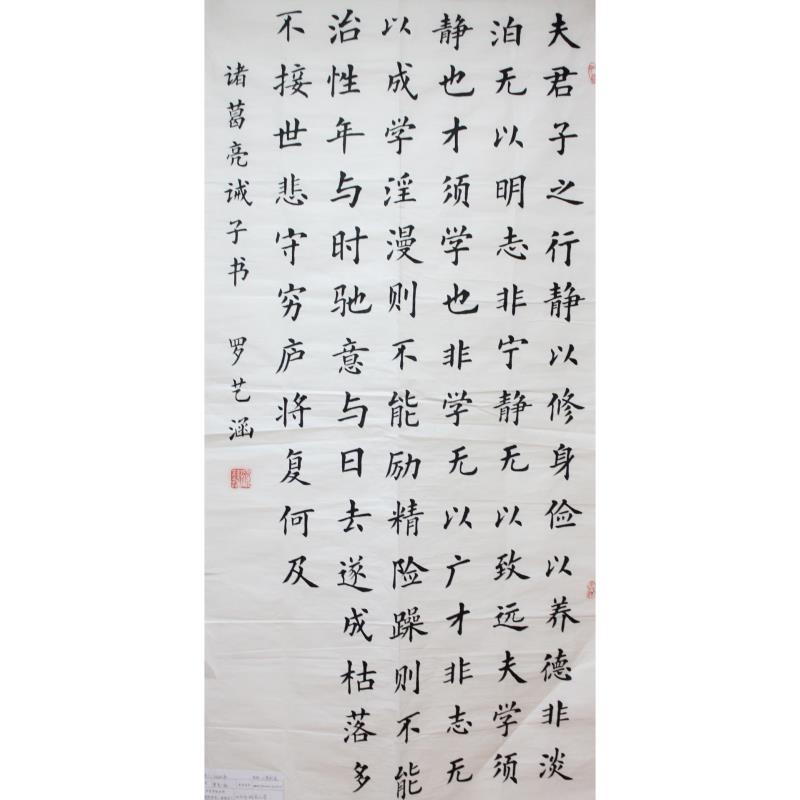 夫君子之行静以修身俭以养德非淡
泊无以明志非宁静无以致远夫学须
静也才须学也非学无以广才非志无
以成学淫漫则不能励精险躁则不能
治性年与时驰意与日去遂成枯落多
不接世悲守穷庐将复何及
诸葛亮诫子书 罗艺涵